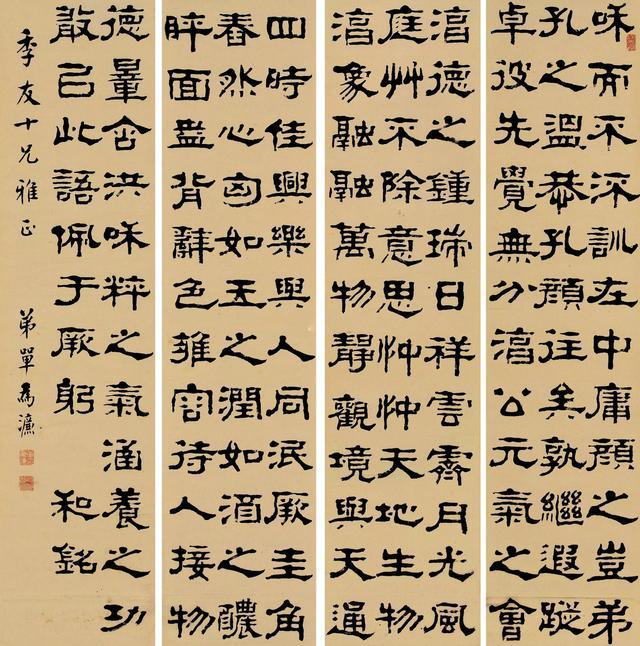 咊而不流訓在中庸顏之豈弟
孔之溫恭孔顏往矣孰繼遐蹤
卓彼先覺無分淳公元氣之會
淳德之鍾瑞日祥雲霽月光風
庭艸不除意思冲冲天地生物
淳象融融萬物靜觀境與天通
四時佳興樂與人同泯厥圭角
春然心匈如玉之潤如酒之醲
睟面盎背辭色雍容待人接物
德量含洪咊粹之氣涵養之功
敢以此語佩于厥躬 和銘
季友十兄雅正 弟單為濂